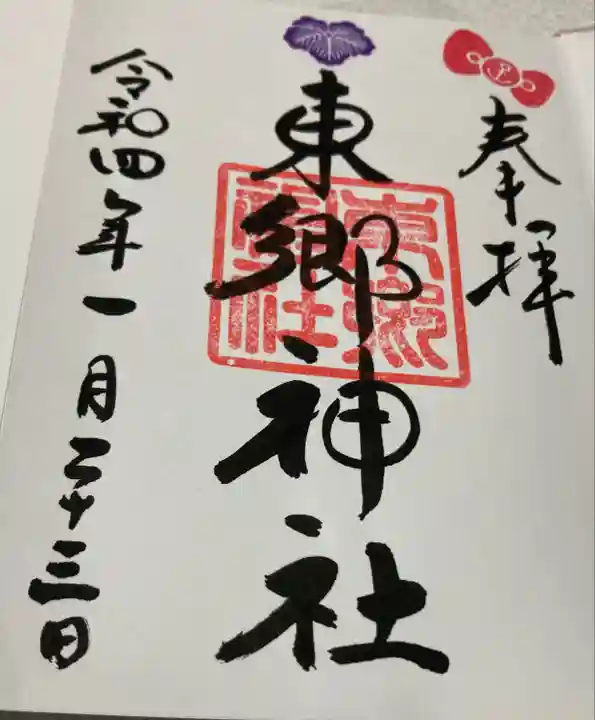 奉拝
東郷神社
東郷神社
令和四年一月二十三日